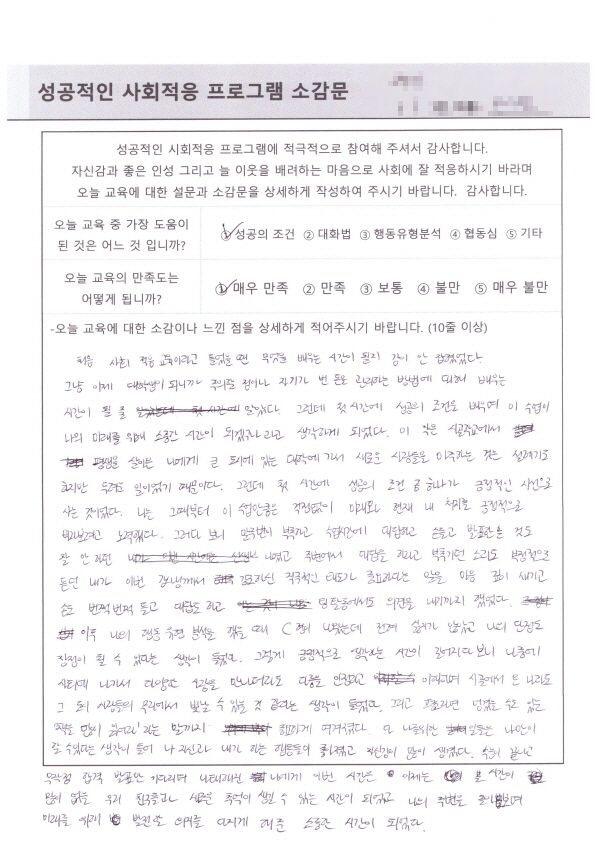 성공적인 사회적응 프로그램 소감문
성공적인 시회적응 프로그램에 적극적으로 참여해 주셔서 감사합니다.
자신감과 좋은 인성 그리고 늘 이웃을 배려하는 마음으로 사회에 잘 적응하시기 바라며
오늘 교육에 대한 설문과 소감문을 상세하게 작성하여 주시기 바랍니다. 감사합니다.
오늘 교육 중 가장 도움이
된 것은 어느 것 입니까?
① 성공의 조건 ② 대화법 ③ 행동유형분석 ④ 협동심 ⑤ 기타
오늘 교육의 만족도는
어떻게 됩니까?
① 매우 만족 ② 만족 ③ 보통 ④ 불만 ⑤ 매우 불만
-오늘 교육에 대한 소감이나 느낀 점을 상세하게 적어주시기 바랍니다. (10줄 이상)
처음 사회 적응 교육이라고 들었을 땐 무엇을 배우는 시간이 될지 감이 안 잡혔었다
그냥 이제 대학생이 되니까 주의할 점이나 자기가 번 돈을 관리하는 방법에 대해 배우는
시간이 될 줄 알았다. 그런데 첫 시간에 성공의 조건을 배우며 이 수업이
나의 미래를 위해 소중한 시간이 되겠구나라고 생각하게 되었다. 이 작은 시골학교에서
평생을 살아온 나에게 큰 도시에 있는 대학에 가서 새로운 사람들을 마주하는 것은 설레기도
하지만 두려운 일이었기 때문이다. 그런데 첫 시간에 성공의 조건 중 하나가 긍정적인 시선으로
사는 것이었다. 나는 그때부터 이 수업만큼은 걱정없이 미래와 현재 내 처지를 긍정적으로
바라보려고 노력했다. 그러다 보니 부족하고 수업시간에 대답하고 손들고 발표하는 것도
잘 안 하던 내가 대답을 하라고 부추기던 소리도 부정적으로
듣던 내가 이번 강사님께서 강조하신 적극적인 태도가 중요하다는 말을 마음 깊이 새기고
손도 번쩍번쩍 들고 대답도 하고 팀 활동에서도 의견을 내기까지 했었다.
이후 나의 행동 유형 분석을 했을 때 C형이 나왔는데 전혀 싫지가 않았고 나의 단점도
장점이 될 수 있다는 생각이 들었다. 그렇게 긍정적으로 생각하는 시간이 길어지다 보니 나중에
사회에 나가서 다양한 사람을 만나더라도 다름을 인정하고 이해하며 시골에서 온 나라도
그 도시 사람들의 무리에서 빛날 수 있을 것 같다는 생각이 들었다. 그리고
라는 말까지 힘차게 여겨졌다. 또 일들은 나만이
할 수 있다는 생각이 들어 나 자신과 내가 하는 행동들이 자신감이 많이 생겼다.
합격 발표만 기다리며 나에게 이번 시간은 이제는 볼 시간이
많이 없을 우리 친구들과 새로운 추억이 생길 수 있는 시간이 되었고 나의 주변을 돌아보며
미래를 위해 발전할 의지를 다지게 해준 소중한 시간이 되었다.